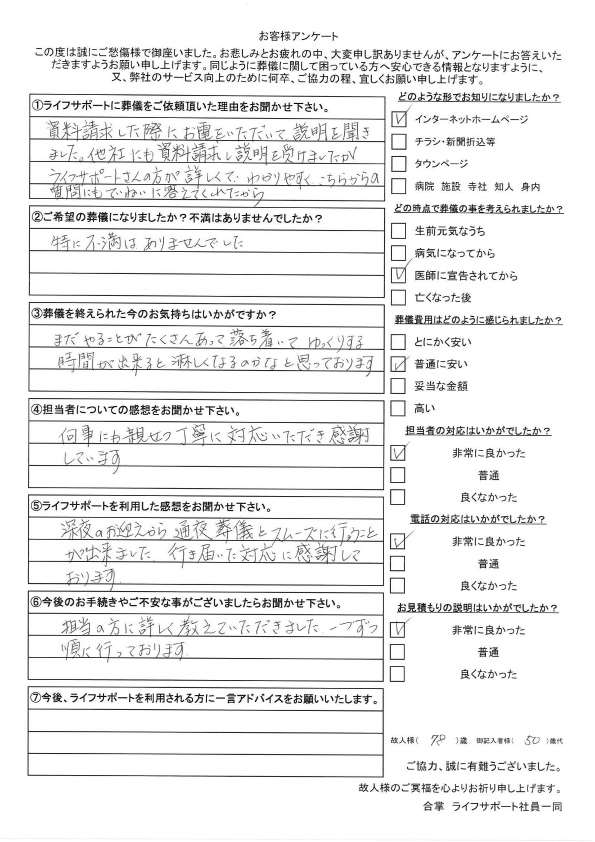 お客様アンケート
この度は誠にご愁傷様で御座いました。お悲しみとお疲れの中、大変申し訳ありませんが、アンケートにお答えいた
だきますようお願い申し上げます。同じように葬儀に関して困っている方へ安心できる情報となりますように、
又、弊社のサービス向上のために何卒、ご協力の程、宜しくお願い申し上げます。
①ライフサポートに葬儀をご依頼頂いた理由をお聞かせ下さい。
資料請求した際にお電をいただいて説明を聞き
ました。他社にも資料請求し説明を受けましたが
ライフサポートさんの方が詳しくてわかりやすく、こちらからの
質問にもていねいに答えてくれたから
②ご希望の葬儀になりましたか？不満はありませんでしたか？
特に不満はありませんでした
③葬儀を終えられた今のお気持ちはいかがですか？
まだやることがたくさんあって落ち着いてゆっくりする
時間が出来ると淋しくなるのかなと思っております
④担当者についての感想をお聞かせ下さい。
何事にも親切丁寧に対応いただき感謝
しています
⑤ライフサポートを利用した感想をお聞かせ下さい。
深夜のお迎えから通夜葬儀とスムーズに行うこと
が出来ました。行き届いた対応に感謝して
おります。
⑥今後のお手続きやご不安な事がございましたらお聞かせ下さい。
担当の方に詳しく教えていただきました。一つずつ
順に行っております。
⑦今後、ライフサポートを利用される方に一言アドバイスをお願いいたします。
どのような形でお知りになりましたか？
インターネットホームページ
チラシ・新聞折込等
タウンページ
病院 施設 寺社 知人 身内
どの時点で葬儀の事を考えられましたか？
生前元気なうち
病気になってから
医師に宣告されてから
亡くなった後
葬儀費用はどのように感じられましたか？
とにかく安い
普通に安い
妥当な金額
高い
担当者の対応はいかがでしたか？
非常に良かった
普通
良くなかった
電話の対応はいかがでしたか？
非常に良かった
普通
良くなかった
お見積もりの説明はいかがでしたか？
非常に良かった
普通
良くなかった
故人様（ 78 ）歳 御記入者様（ 50 ）歳代
ご協力、誠に有難うございました。
故人様のご冥福を心よりお祈り申し上げます。
合掌 ライフサポート社員一同